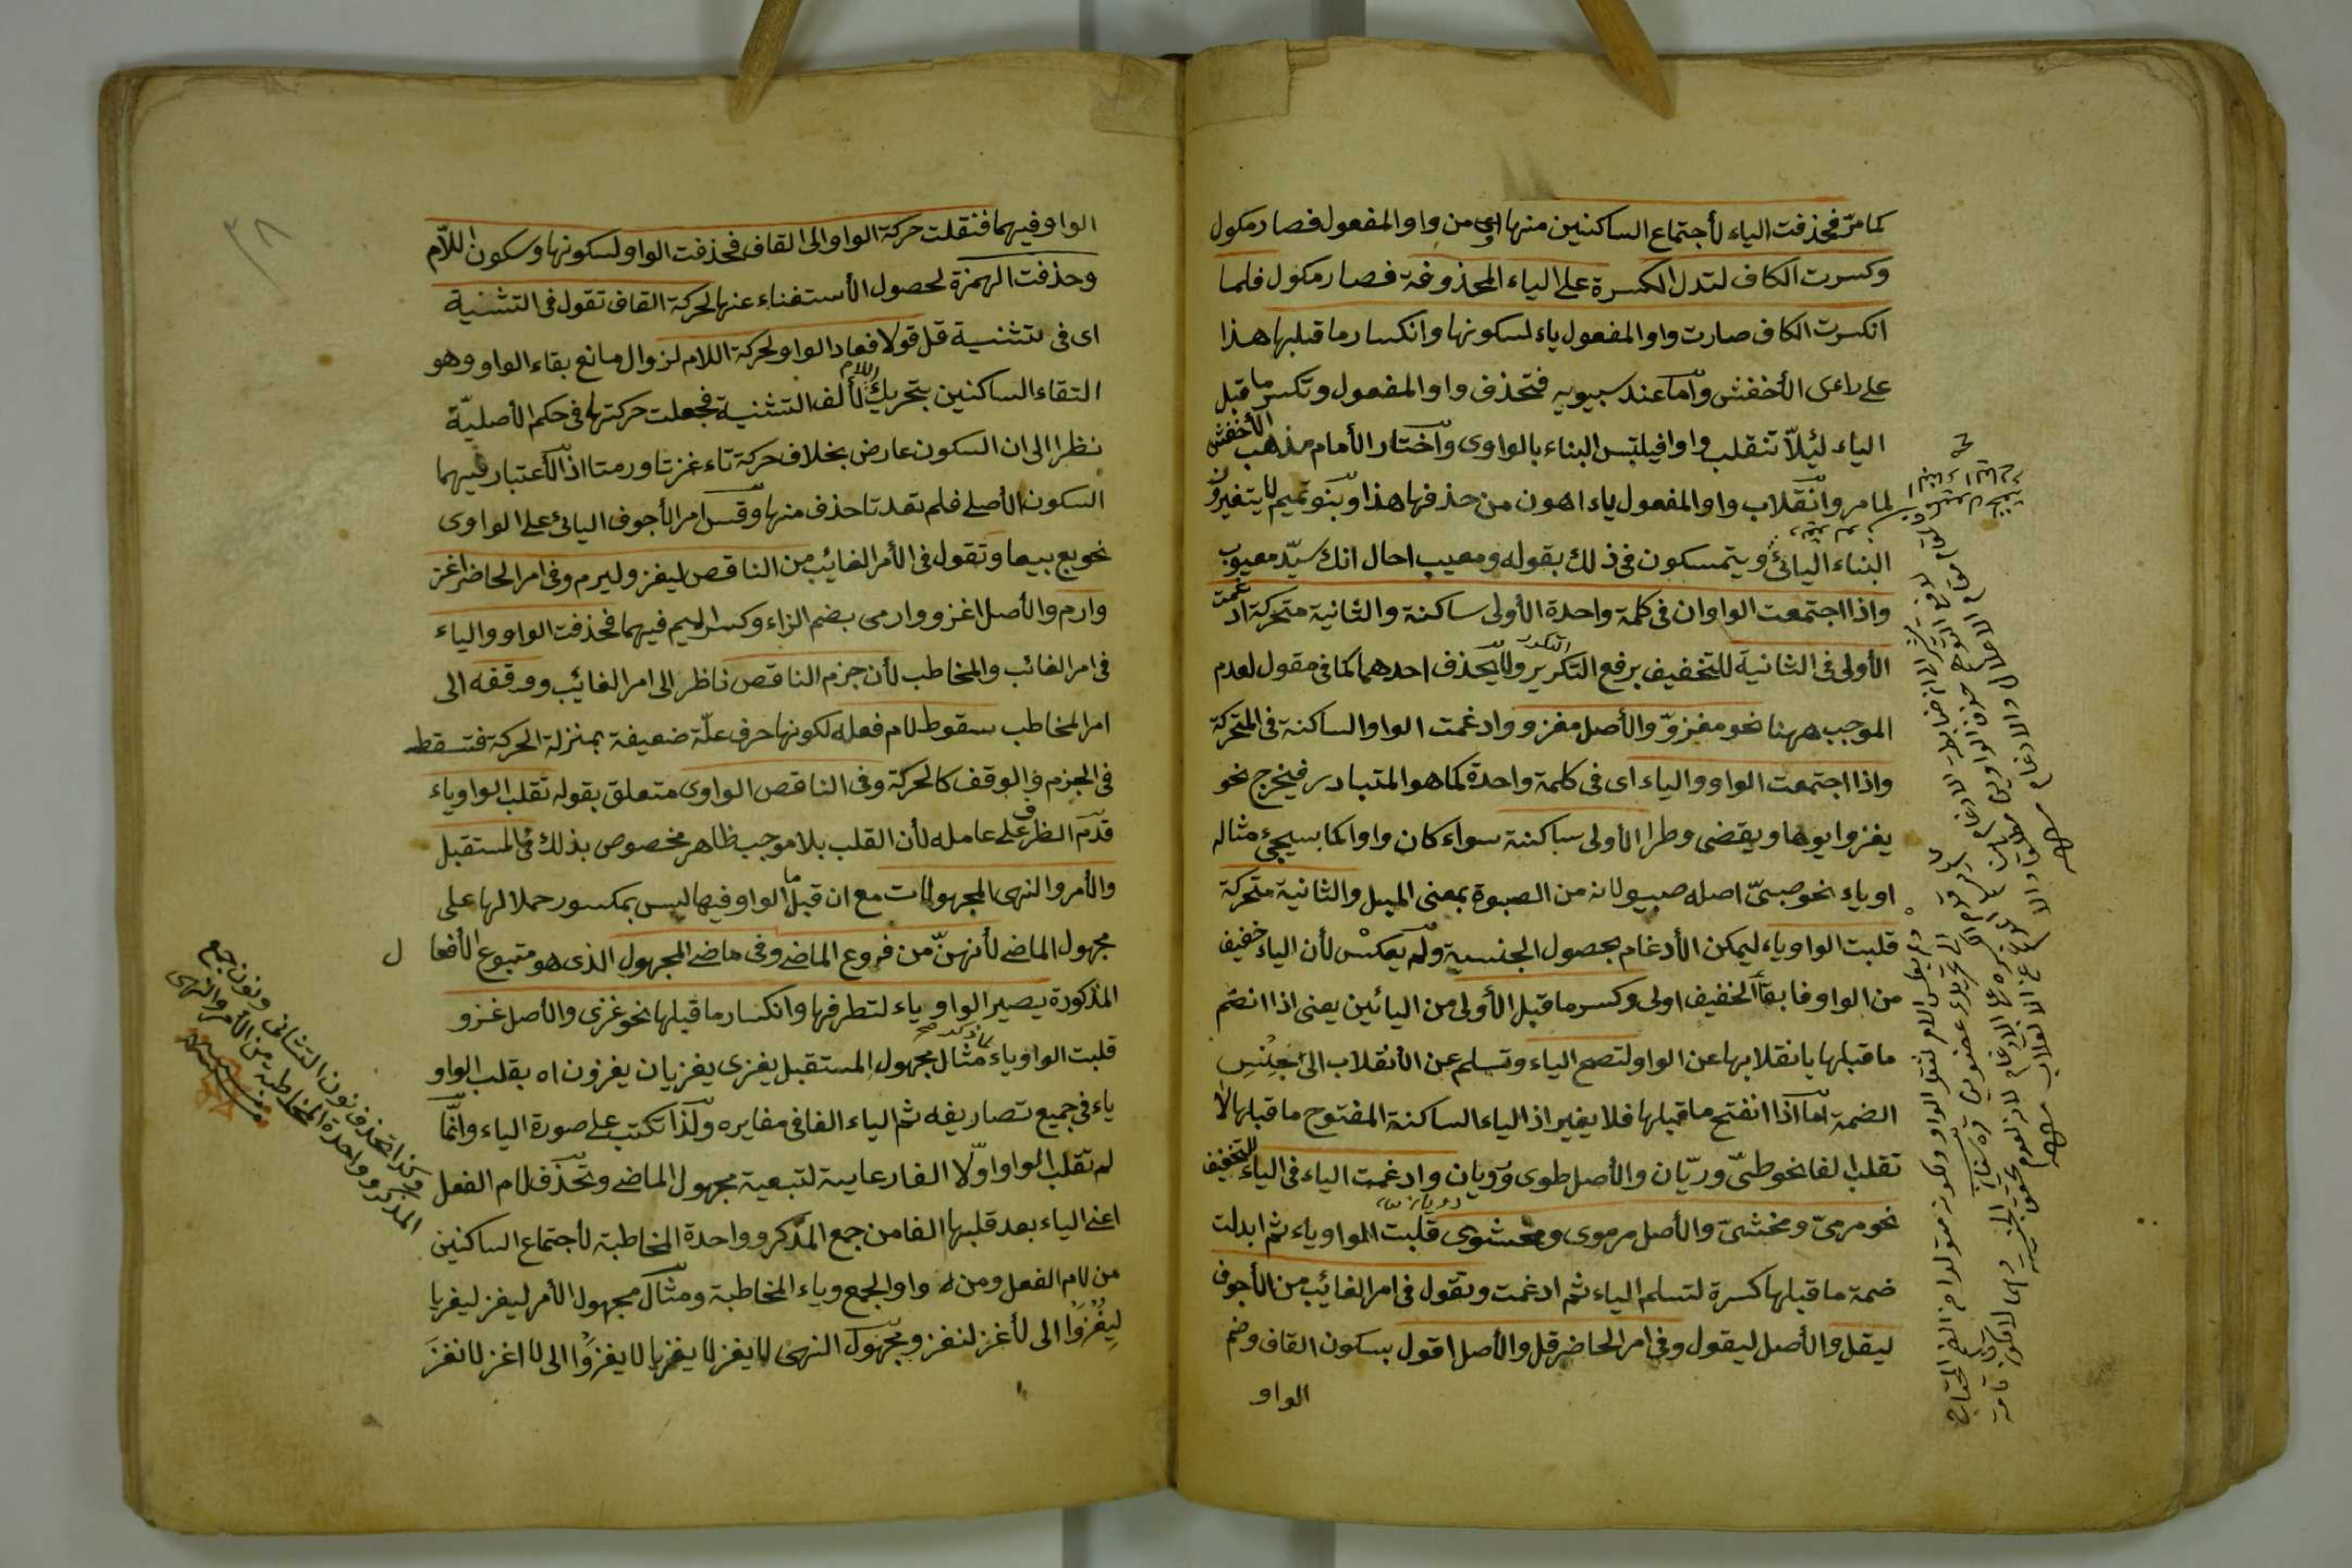 كما مرّ فحذفت الياء لأجتماع الساكنين منها اى من واو المفعول فصار مكول
وكسرت الكاف لتدل الكسرة على الياء المحذوفة فصار مكول فلما
انكسرت الكاف صارت واو المفعول ياء لسكونها وانكسار ما قبلها هذا
على راى الأخفش وأما عند سيبويه فتحذف واو المفعول وتكسر ما قبل
الياء لئلاّ تنقلب واوا فيلتبس البناء بالواوى واختار الأمام مذهب الأخفش
لما مر وانقلاب واو المفعول ياء اهون من حذفها هذا وبنو تميم لا يتغيرون
البناء اليائى ويتمسكون فى ذلك بقوله ومعيب احال انك سيّد معيوب
واذا اجتمعت الواوان فى كلمة واحدة الأولى ساكنة والثانية متحركة ادغمت
الأولى فى الثانية للتخفيف برفع التكرير ولا يحذف احدهما كما فى مقول لعدم
الموجب ههنا نحو مغزوّ والأصل مغزوو وادغمت الواو الساكنة فى المتحركة
واذا اجتمعت الواو والياء اى فى كلمة واحدة كما هو المتبادر فيخرج نحو
يغزوا يوما ويقضى وطرا الأولى ساكنة سواء كان واوا كما سيجئ مثاله
او ياء نحو صبىّ اصله صبيو لانه من الصبوة بمعنى الميل والثانية متحركة
قلبت الواو ياء ليمكن الأدغام بحصول الجنسية ولم يعكس لأن الياء خفيف
من الواو فابقاء الخفيف اولى وكسر ما قبل الأولى من اليائين يعنى اذا انضم
ما قبلها يا نقلابها عن الواو لتصح الياء وتسلم عن الأنقلاب الى جنس
الضمة اما اذا انفتح ما قبلها فلا يغير اذ الياء الساكنة المفتوح ما قبلها لا
تقلب الفا نحو طىّ وريّان والأصل طوى ورويان وادغمت الياء فى الياء للتخفيف
نحو مرمىّ ومخشىّ والأصل مرموى ومخشوى قلبت الواو ياء ثم ابدلت
ضمة ما قبلها كسرة لتسلم الياء ثم ادغمت وتقول فى امر الغائب من الأجوف
ليقل والأصل ليقول وفى امر الحاضر قل والأصل اقول بسكون القاف وضم
الواو
الواو فيهما فنقلت حركة الواو الى القاف فحذفت الواو لسكونها وسكون اللاّم
وحذفت الهمزة لحصول الأستغناء عنها لحركة القاف تقول فى التثنية
اى فى تثنية قل قولا فعاد الواو لحركة اللام لزوال مانع بقاء الواو وهو
التقاء الساكنين بتحريك اللام لألف التثنية فجعلت حركتها فى حكم الأصليّة
نظرا الى ان السكون عارض بخلاف حركة تاء غزتا ورمتا اذ الأعتبار فيهما
السكون الأصلى فلم تعد تا حذف منها وقس امر الأجوف اليائى على الواوى
نحو بع بيعا وتقول فى الأمر الغائب من الناقص ليغز وليرم وفى امر الحاضر اغز
وارم والأصل اغزو وارمى بضم الزاء وكسر الميم فيهما فحذفت الواو والياء
فى امر الغائب والمخاطب لأن جزم الناقص ناظر الى امر الغائب ووقفه الى
امر المخاطب سقوط لام فعله لكونها حرف علّة ضعيفة بمنزلة الحركة فتسقط
فى الجزم والوقف كالحركة وفى الناقص الواوى متعلق بقوله تقلب الواو ياء
قدّم الظرف على عامله لأن القلب بلا موجب ظاهر مخصوص بذلك فى المستقبل
والأمر والنهى المجهولات مع ان قبل ما الواو فيها ليس بمكسور حملا لها على
مجهول الماضى لأنهنّ من فروع الماضى وفى ماضى المجهول الذى هو متبوع الأفعا ل
المذكورة يصير الواو ياء لتطرفها وانكسار ما قبلها نحو غزى والأصل غزو
قلبت الواو ياء مثال مجهول المستقبل يغزى يغزيان يغزون اه بقلب الواو
ياء فى جميع تصاريفه ثم الياء الفا فى مغايره ولذا تكتب على صورة الياء وانما
لم تقلب الواو اوّلا الفا رعاية لتبعية مجهول الماضى وتحذف لام الفعل
اعنى الياء بعد قلبها الفا من جمع المذكر وواحدة المخاطبة لأجتماع الساكنين
من لام الفعل ومن له واو الجمع وياء المخاطبة ومثال مجهول الأمر ليغز ليغزيا
ليغزوا الى لأغز لنغز ومجهول النهى لا يغز لا يغزيا لا يغزوا الى لا اغز لا نغز
وكذا تحذف نون التثانى ونون جمع
المذكر وواحدة المخاطبة من الأمر والنهى
٣٨